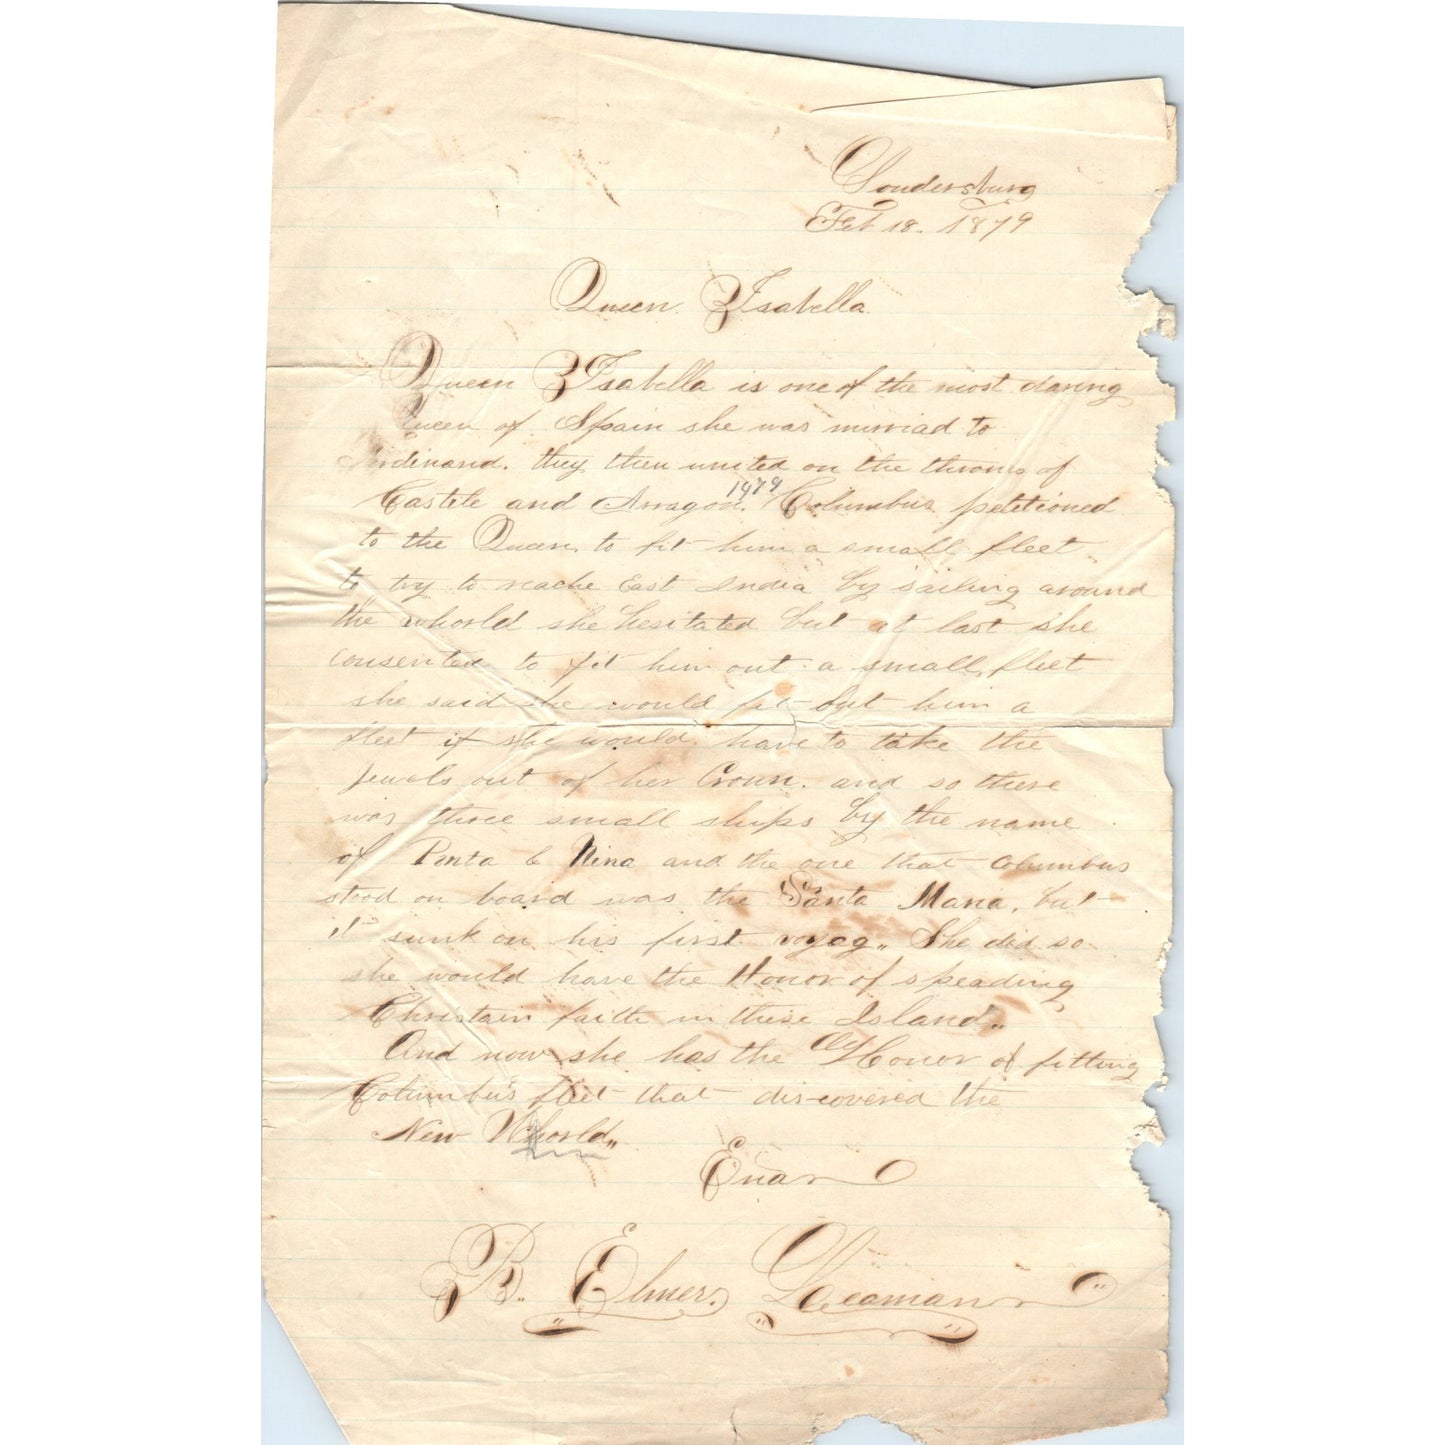 Soudersburg
Feb 18. 1879
Queen Isabella
Queen Isabella is one of the most daring
Queen of Spain she was murriad to
Ferdinand. they then united on the throns of
Castele and Arragon. 1479 Columbus petetioned
to the Queen, to fit him a small fleet
to try to reache East India by sailing around
the whorld she hesitated but at last she
consented to fit him out a small fleet
she said she would fit out him a
fleet if she would have to take the
jewels out of her Croun. and so there
was three small ships by the name
of Penta & Nina and the one that Columbus
stood on board was the Santa Maria, but
it sunk on his first voyag,, She did so
she would have the Honor of speading
Christain faith in these Island,,
And now she has the Honor of fitting
Columbu's fleet that dis-covered the
New Whorld,,
B. Elmer. Leaman